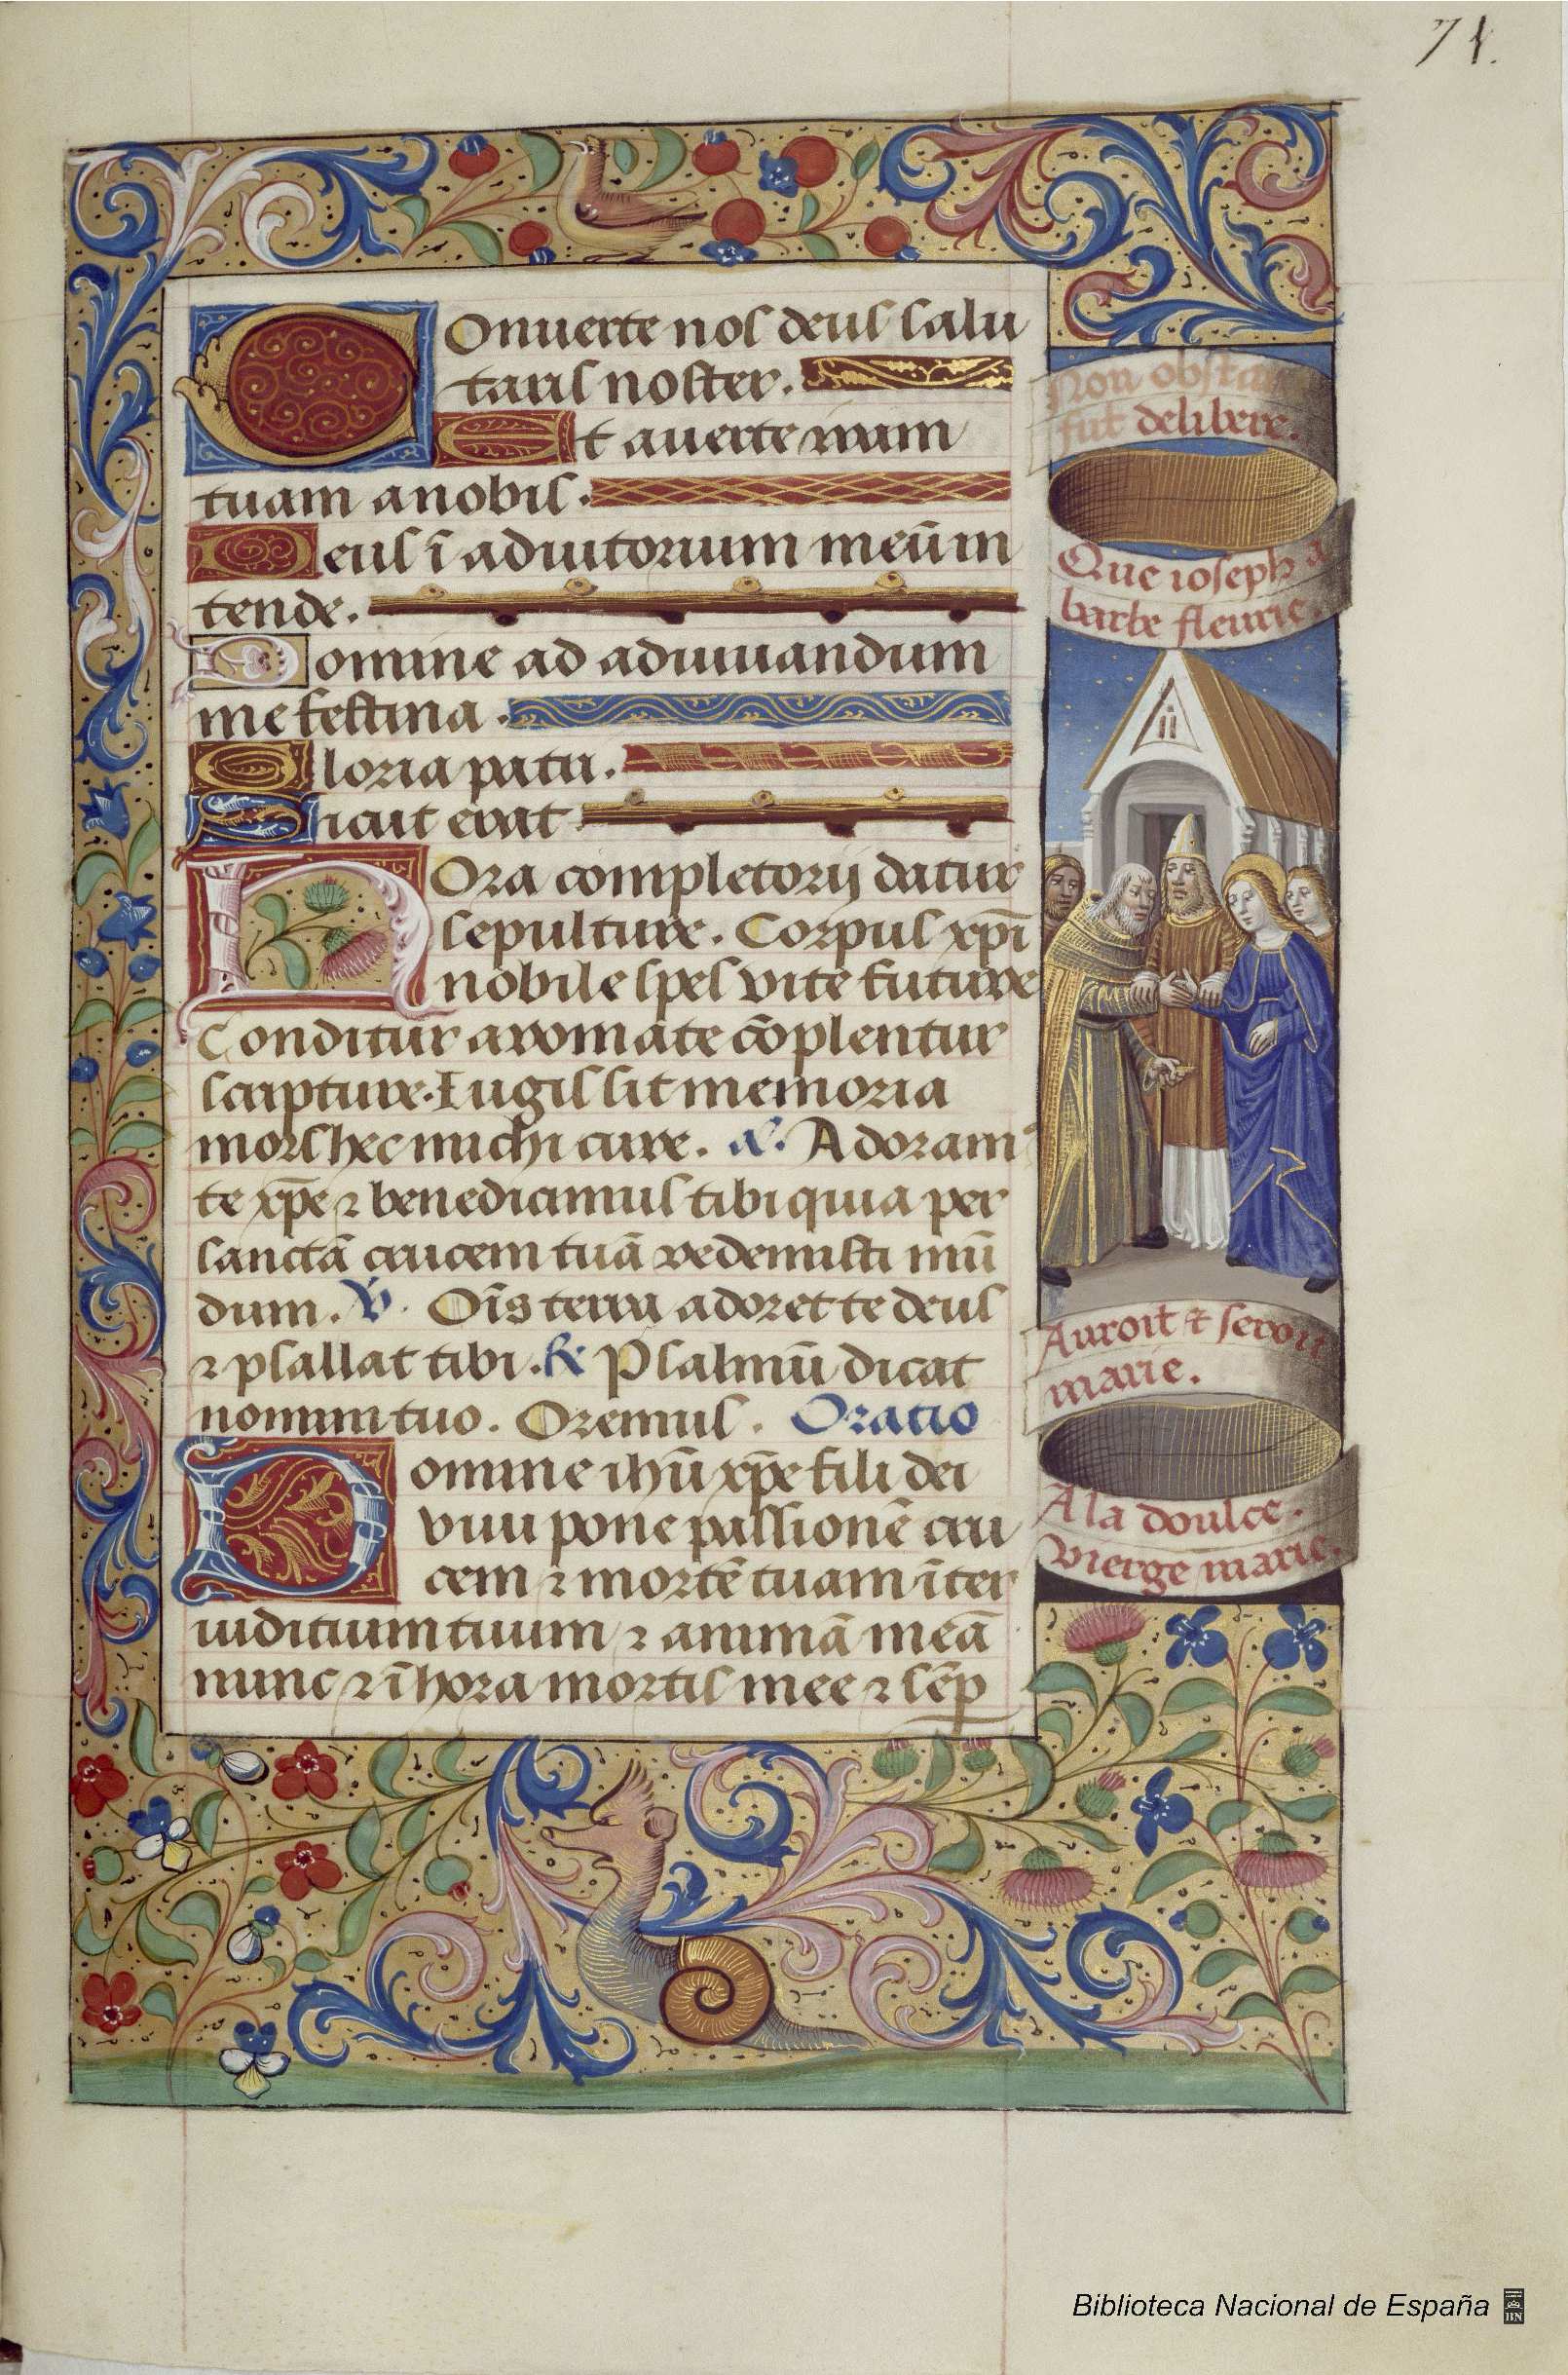 71.
Conuerte nos deus salu
taris noster.
Et auerte iram
tuam a nobis.
Deus ī adiutorium meūm in
tende.
Domine ad adiuuandum
me festina.
Gloria patri.
Sicut erat
Hora completorij datur
sepulture. Corpus xp̄i
nobile spes vite future
Conditur aromate cōplentur
scripture. Iugis sit memoria
mors hec michi cure. Adoram
te xp̄e ⁊ benedicimus tibi quia per
sanctā crucem tuā redemisti mū
dum. ℣. Oīs terra adoret te deus
⁊ psallat tibi. ℟ Psalmū dicat
nomini tuo. Oremus. Oratio
Domine ihū xp̄e fili dei
viui pone passionē cru
cem ⁊ mortē tuam īter
iuditium tuum ⁊ animā meā
nunc ⁊ ī hora mortis mee ⁊ sēp
Non obstant
fut delibere.
Que ioseph a
barbe fleurie.
Auroit et seroit
marie.
A la doulce.
Vierge marie.
Biblioteca Nacional de España
BN